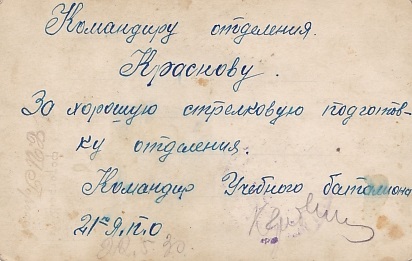 Командиру отделения.
Краснову.
За хорошую стрелковую подготов-
ку отделения.
Командир Учебного батальона
21